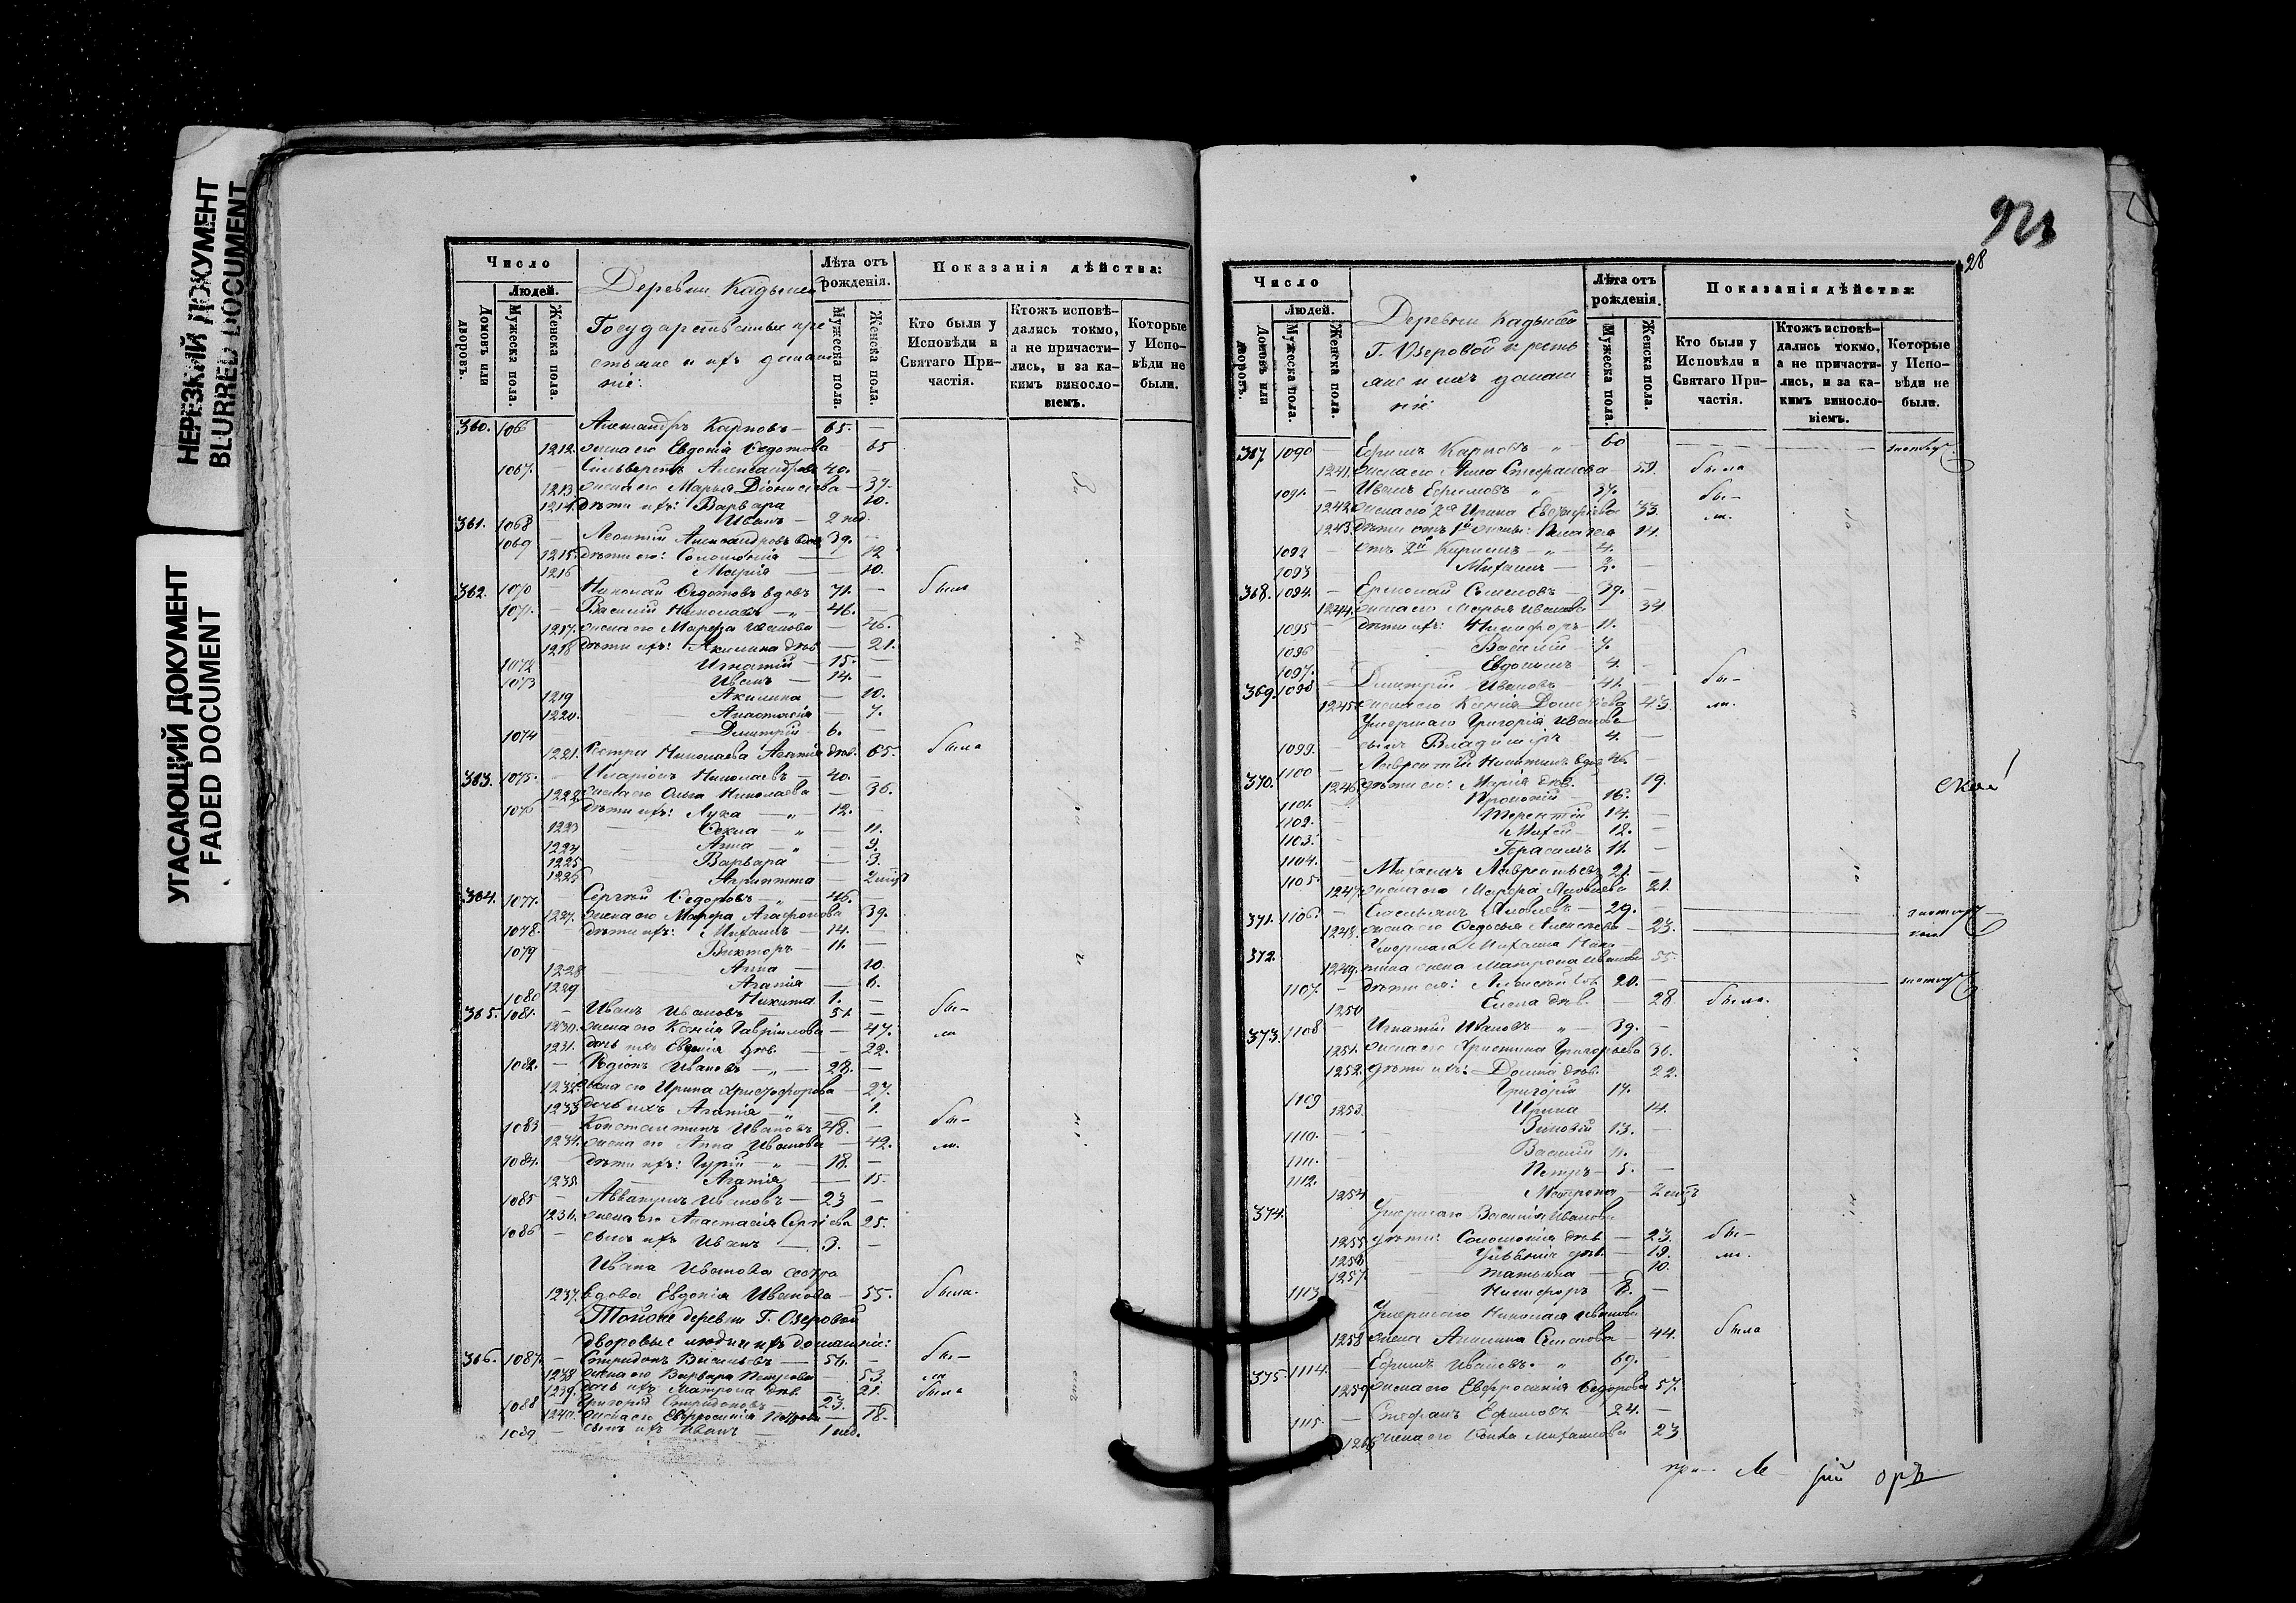 НЕРЕЗКИЙ ДОКУМЕНТ
BLURRED DOCUMENT
УГАСАЮЩИЙ ДОКУМЕНТ
FADED DOCUMENT
Число
Людей.
Домовъ или дворовъ.
Мужеска пола.
Женска пола.
Деревни
Государственные
Лѣта отъ рожденія.
Мужеска пола.
Женска пола.
Показанія дѣйства:
Кто были у Исповѣди и Святаго Причастія.
Ктожъ исповѣдались токмо, а не причастились, и за какимъ винословіемъ.
Которые у Исповѣди не были.
360. 1066 — Александръ Карповъ — 65. —
1212. жена его Евдокія Ѳедотова 65
1067. — Сильвестръ Александровъ 40. —
1213 жена его Марья Діонисіева — 37.
1214. дѣти ихъ: Варвара 10.
1068 Иванъ — 2 нед.
361. 1069 — Леонтій Александровъ вдов 39. —
1215. дѣти его: Соломонія — 12
1216 Марія — 10.
362. 1070 — Николай Ѳедотовъ вдовъ 71. — былъ
1071. — Василій Николаевъ — 46. —
1217. жена его Марѳа Иванова — 46.
1218 дѣти ихъ: Акилина дѣв — 21.
1072 Игнатій — 15. —
1073 Иванъ — 14. —
1219 Акилина — 10.
1220. Анастасія — 7.
1074 Димитрій 6. —
1221. Сестра Николаева Агаѳія дѣв. 65. была
363. 1075. — Иларіонъ Николаевъ — 40. —
1222 жена его Ольга Николаева — 36.
1076 — дѣти ихъ: Лука — 12. —
1223 Ѳекла — 11.
1224 Анна — 9.
1225 Варвара — 3.
1226 Агрипина — 2 мѣс
364. 1077. — Сергѣй Ѳедоровъ — 46. —
1227. жена его Марѳа Агаѳонова 39.
1078. дѣти ихъ: Михаилъ — 14. —
1079 Викторъ — 11. —
1228 Анна — 10.
1229 Агаѳія — 6.
1080 Никита 1. —
365. 1081. — Иванъ Ивановъ — 51. — бы—
1230. жена его Ксенія Гавріилова — 47. ли
1231. дочь ихъ Евгенія дѣв. — 22.
1082. — Родіонъ Ивановъ — 28. —
1232 жена его Ирина Христофорова — 27.
1233 дочь ихъ Агаѳія — 1.
1083 — Константинъ Ивановъ 48. — бы—
1234. жена его Анна Иванова — 42. ли.
1084. дѣти ихъ: Гурій — 18. —
1235. Агаѳія — 15.
1085 — Аввакумъ Ивановъ — 23 —
1236. жена его Анастасія Сергіева 25.
1086 — сынъ ихъ Иванъ — 3. —
Ивана Иванова сестра
1237. вдова Евдокія Иванова — 55. была.
Тойже деревни Г. Озеровой
дворовые люди и ихъ домашніе:
366. 1087. — Спиридонъ Васильевъ — 54. — бы—
1238 жена его Варвара Петрова 53. ли
1239. дочь ихъ Матрона дѣв. — 21. была
1088 — Григорій Спиридоновъ — 23. —
1240. жена его Евфросинія Петрова — 18.
1089 — сынъ ихъ Иванъ — 1 нед.
28
Число
Людей.
Домовъ или дворовъ.
Мужеска пола.
Женска пола.
Деревни
Г. Озеровой кресть
яне и ихъ домаш
ніе
Лѣта отъ рожденія.
Мужеска пола.
Женска пола.
Показанія дѣйства:
Кто были у Исповѣди и Святаго Причастія.
Ктожъ исповѣдались токмо, а не причастились, и за какимъ винословіемъ.
Которые у Исповѣди не были.
367. 1090 — Ефимъ Карповъ 60 —
1241. жена его Анна Стефанова — 59. была
1091. — Иванъ Ефимовъ 37. — бы—
1242 жена его 2я Ирина 33. ли.
1243. дѣти отъ 1й жены: Пелагея 14.
1092 — отъ 2й Кириллъ — 4. —
1093 Михаилъ — 2. —
368. 1094. — Ермолай Семеновъ — 39. —
1244. жена его Марья Иванова — 34
1095 — дѣти ихъ: Никифоръ 11. —
1096 Василій 7. —
1097. Евдокимъ 4. —
369. 1098 — Димитрій Ивановъ — 41. — бы—
1245. жена его Ксенія 43. ли.
Умершаго Григорія Иванова
1099. сынъ Владиміръ — 4. —
370. 1100 — Лаврентій Никитинъ вдов 46. —
1246. дѣти его: Марія дѣв. 19.
1101. Прокопій 16. —
1102. Терентій 14. —
1103. Михей — 12. —
1104. Герасимъ 11. —
1105 — Михаилъ Лаврентьевъ 21. —
1247. жена его Марѳа 21.
371. 1106. — Емельянъ Яковлевъ — 29. —
1248. жена его Ѳедосья Алексѣева — 23.
372. Умершаго Михаила Ники—
1249. тина жена Матрона Иванова 55.
1107. — дѣти ея: Алексѣй 20. —
1250 Елена дѣв. — 28 была.
373. 1108 — Игнатій Ивановъ — 39. —
1251. жена его Христина Григорьева 36.
1252. дѣти ихъ: Домна дѣв. 22.
1109 Григорій 17.
1253. Ирина 14.
1110. Зиновій 13. —
1111. Василій 11. —
1112. Петръ — 5. —
1254 Матрона — 2 мѣс
374. Умершаго Василія Иванова
1255 дѣти: Соломонія дѣв — 23. бы—
1256 Ульянія дѣв. — 19. ли.
1257. Татьяна — 10.
1113 Никифоръ 8. —
Умершаго Николая Иванова
1258 жена Акилина Семенова — 44. была
375. 1114. — Ефимъ Ивановъ. 69. —
1259 жена его Евфросинія Ѳедорова 57.
1115. — Стефанъ Ефимовъ — 24. —
жена его Ѳекла Михаилова 23